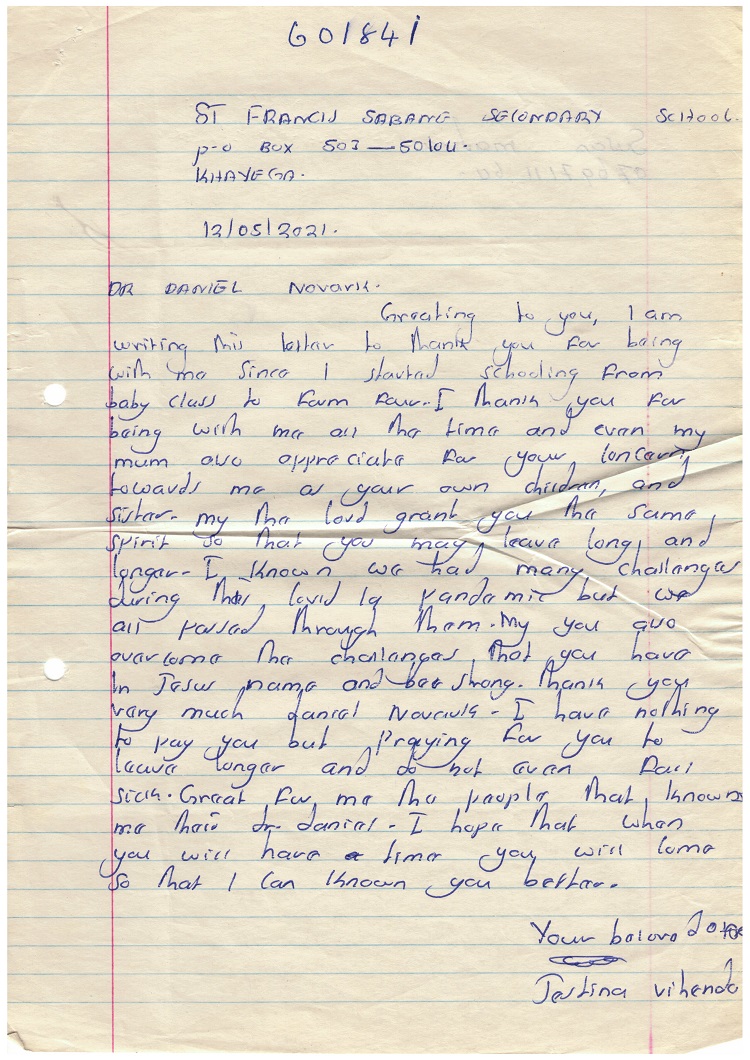 G01841
ST FRANCIS SABANE SECONDARY SCHOOL.
P-O BOX 503 — 50104.
KHAYEGA.
12/05/2021.
DR DANIEL Novark.
Greating to you, I am
writing this letter to thank you for being
with me since I started schooling from
baby class to form four. I thank you for
being with me all the time and even my
mum also appreciate for your concern
towards me as your own children, and
sister. my the lord grant you the same
spirit so that you may leave long and
longer. I known we had many challenges
during this covid 19 pandemic but we
all passed through them. My you also
overcome the challanges that you have
in Jesus name and bee strong. Thank you
very much daniel Novark. I have nothing
to pay you but praying for you to
leave longer and do not even fall
sick. Great for me the people that known
me their dr. daniel. I hope that when
you will have a time you will come
so that I can known you better.
Your belove
Jestina vihenda